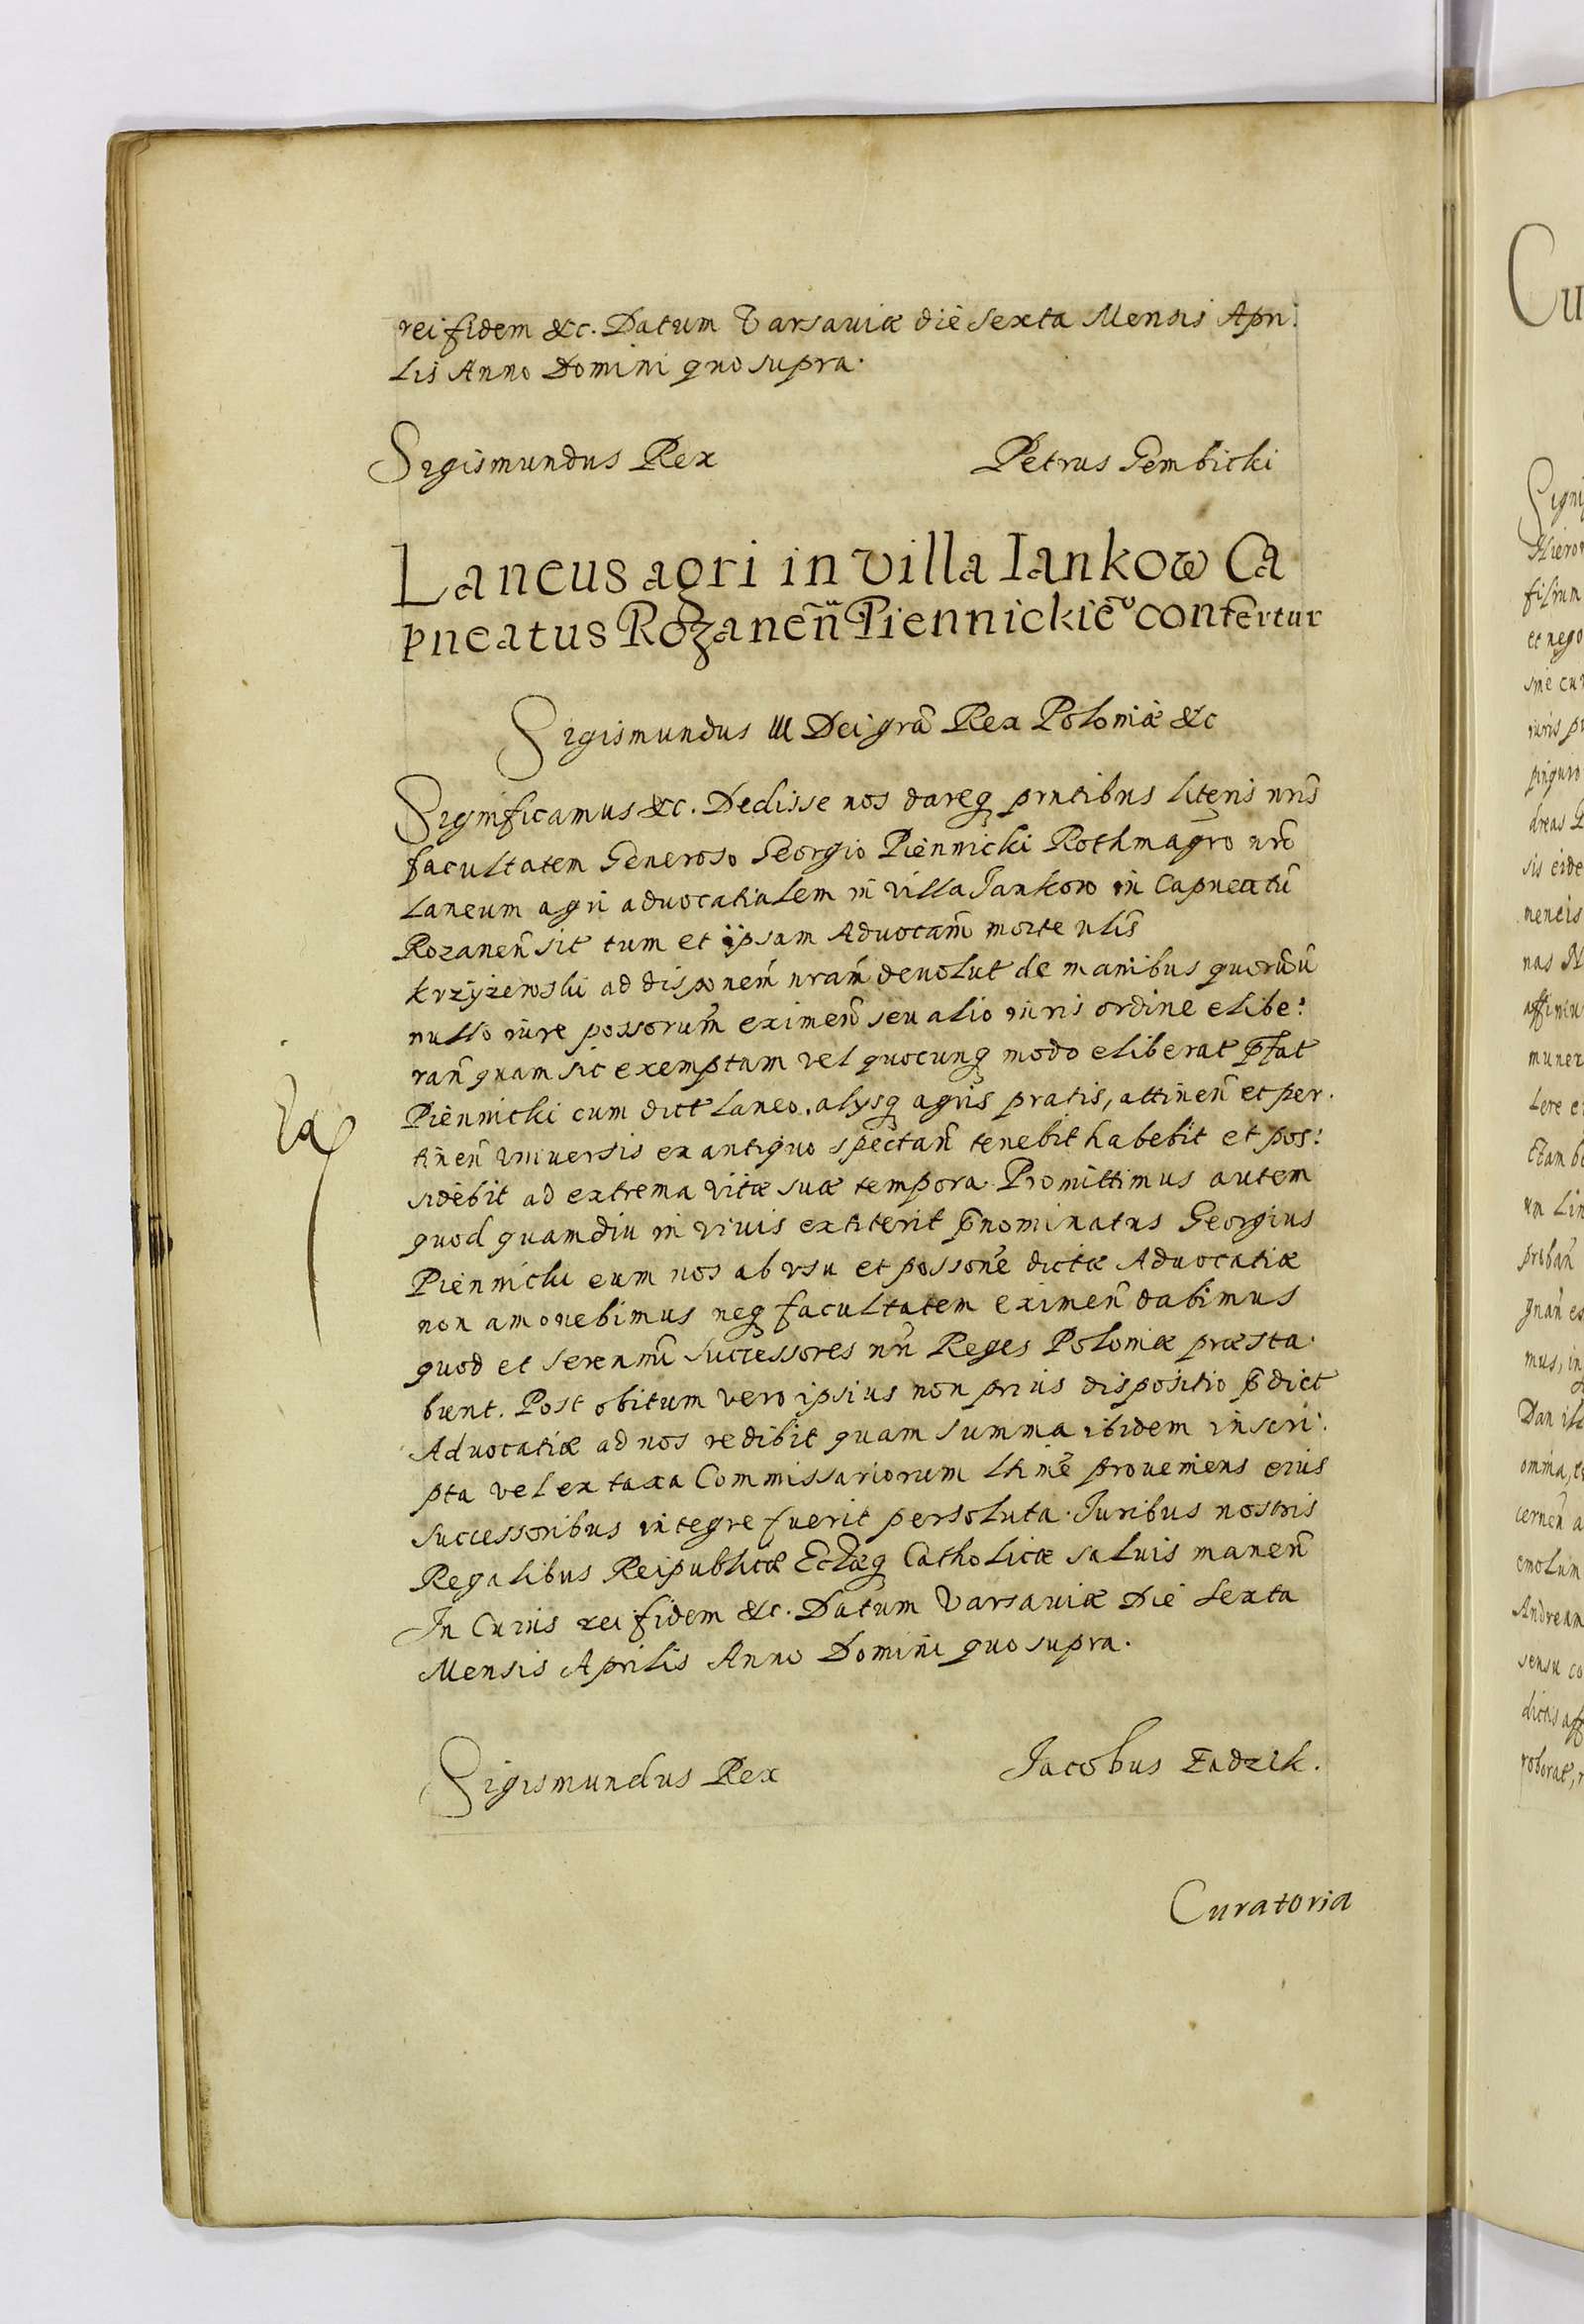 rei fidem &c. Datum Varsaviæ die sexta Mensis Apri:
lis Anno Domini quo supra.
Sigismundus Rex
Petrus Gembicki
Laneus agri in villa Iankow Ca
pneatus Rozaneñ Piennickiẽ confertur
Sigismundus III Dei grã Rex Poloniæ &c
Significamus &c. Dedisse nos dareq prntibus literis nris
facultatem Generoso Georgio Piennicki Rothmagro nro
Laneum agri advocatialem in villa Jankow in Capneatu
Rozaneñ sit tum et ipsam Advocam morte
Krzyżewski ad disponem nram devolut de manibus quorũ
nullo iure possorum eximeñ seu alio iuris ordine elibe:
rañ quam sic exemptam vel quocunq modo eliberat
Piennicki cum dict Laneo, alysq agris pratis, attineñ et per.
tineñ universis ex antiquo spectañ tenebit habebit et pos:
sidebit ad extrema vitæ suæ tempora. Promittimus autem
quod quamdiu in vivis extiterit p̃nominatus Georgius
Piennicki eum nos ab vsu et possone dictæ Advocatiæ
non amovebimus neq facultatem eximeñ dabimus
quod et serenmi successores nri Reges Poloniæ præsta
bunt. Post obitum vero ipsius non prius dispositio p̃dict
Advocatiæ ad nos redibit quam summa ibidem inscri:
pta vel ex taxa Commissariorum ltime proveniens eius
successoribus integre fuerit persoluta. Juribus nostris
Regalibus Reipublicæ Eclæq Catholicæ saluis maneñ
In Cuius rei fidem &c. Datum Varsaviæ Die sexta
Mensis Aprilis Anno Domini quo supra.
Sigismundus Rex
Jacobus Zadzik.
Curatoria